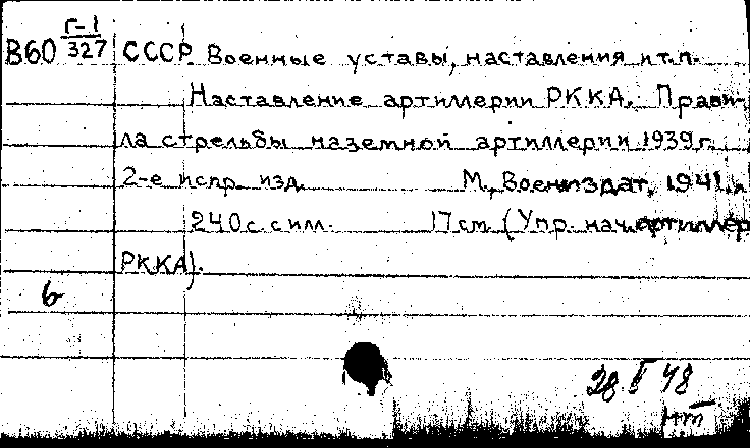 Г-1
В60 327 СССР Военные уставы, наставления и т.п.
Наставление артиллерии РККА. Прави-
ла стрельбы наземной артиллерии 1939 г.
2-е испр. изд. М., Воениздат, 1941.
240 с. с илл. 17 см (Упр. нач. артиллер
РККА).
6
48
нт